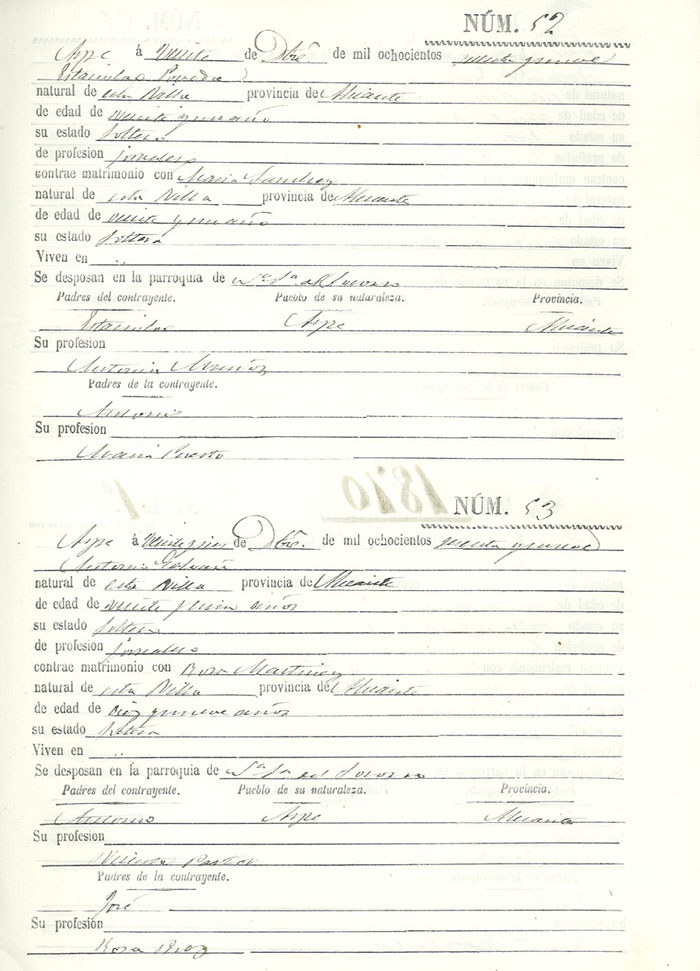 NÚM. 52
Aspe á veinte de Dbre. de mil ochocientos sesenta y nueve
Estanislao Poveda
natural de esta Villa provincia de Alicante
de edad de veinte y un año
su estado soltero
de profesion jornalero
contrae matrimonio con Maria Sanchez
natural de esta Villa provincia de Alicante
de edad de veinte y un año
su estado soltera
Viven en ..
Se desposan en la parroquia de Na Sa del Socorro
Padres del contrayente. Pueblo de su naturaleza. Provincia.
Estanislao Aspe Alicante
Su profesion
Antonia
Padres de la contrayente.
Antonio
Su profesion
Maria Puerto
1870
NÚM. 53
Aspe á de Dbre. de mil ochocientos sesenta y nueve
Antonio
natural de esta Villa provincia de Alicante
de edad de veinte y un años
su estado soltero
de profesion jornalero
contrae matrimonio con Rosa Martinez
natural de esta Villa provincia de Alicante
de edad de diez y nueve años
su estado soltera
Viven en ..
Se desposan en la parroquia de Na Sa del Socorro
Padres del contrayente. Pueblo de su naturaleza. Provincia.
Antonio Aspe Alicante
Su profesion
Vicenta Pastor
Padres de la contrayente.
José
Su profesion
Rosa